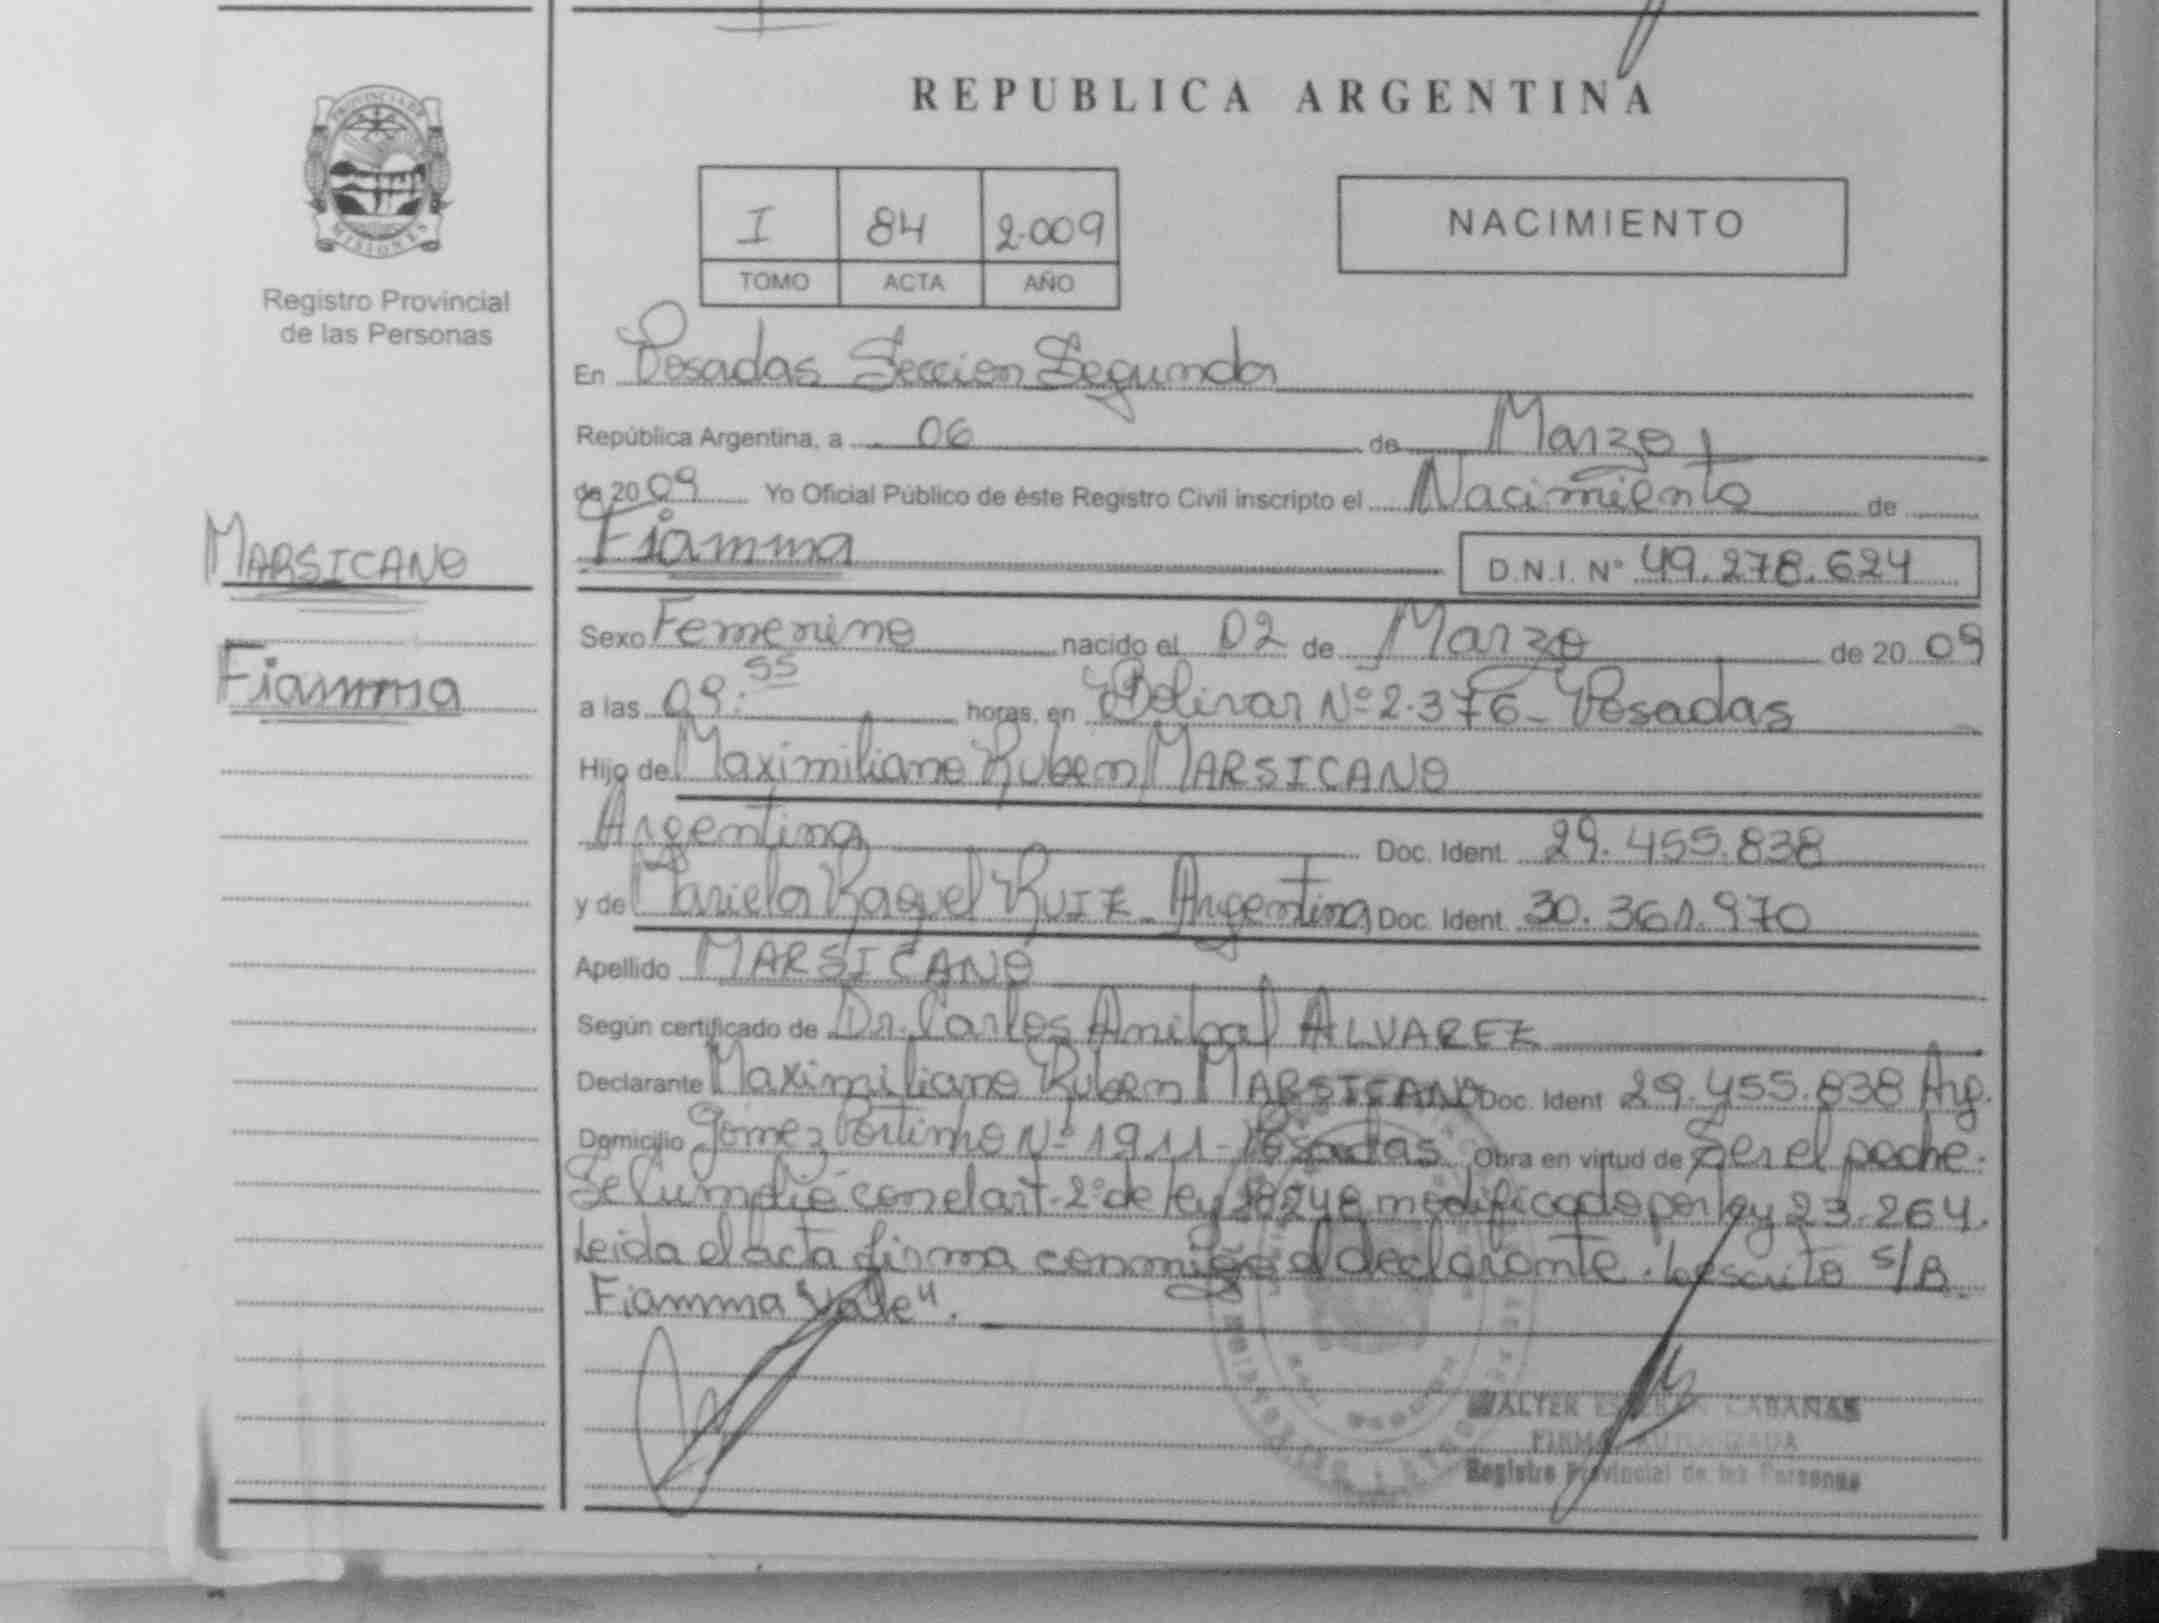 REPUBLICA ARGENTINA
PROVINCIA DE
MISIONES
Registro Provincial
de las Personas
I 84 2.009
TOMO ACTA AÑO
NACIMIENTO
En Posadas Seccion Segunda
República Argentina, a 06 de Marzo
de 20 09 Yo Oficial Público de éste Registro Civil inscripto el Nacimiento de
Fiamma D.N.I. N° 49.278.624
MARSICANO
Fiamma
Sexo Femenino nacido el 02 de Marzo de 20 09
a las 09:55 horas, en Bolivar Nº 2.376 - Posadas
Hijo de Maximiliano Ruben MARSICANO
Argentina Doc. Ident. 29.455.838
y de Mariela Raquel RUIZ - Argentina Doc. Ident. 30.361.970
Apellido MARSICANO
Según certificado de Dr. Carlos Anibal ALVAREZ
Declarante Maximiliano Ruben MARSICANO Doc. Ident 29.455.838 Arg.
Domicilio Gómez Portinho Nº 1911 - Posadas Obra en virtud de Ser el padre.
Se cumplió con el art. 2º de ley 18248 modificado por ley 23.264.
Leida el acta firma conmigo el declarante. Lo scrito S/B
Fiamma "Vale".
WALTER CABAÑAS
FIRMA AUTORIZADA
Registro Provincial de las Personas